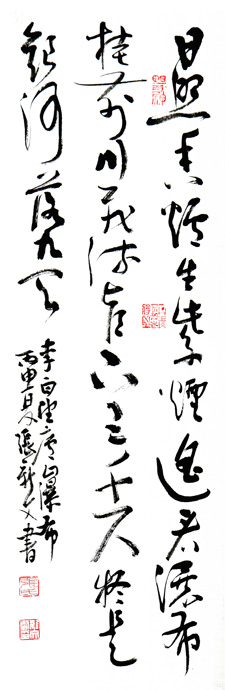 日照香炉生紫煙遥看瀑布
挂前川飛流直下三千尺疑是
銀河落九天
李白望廬山瀑布
丙申夏張新文書